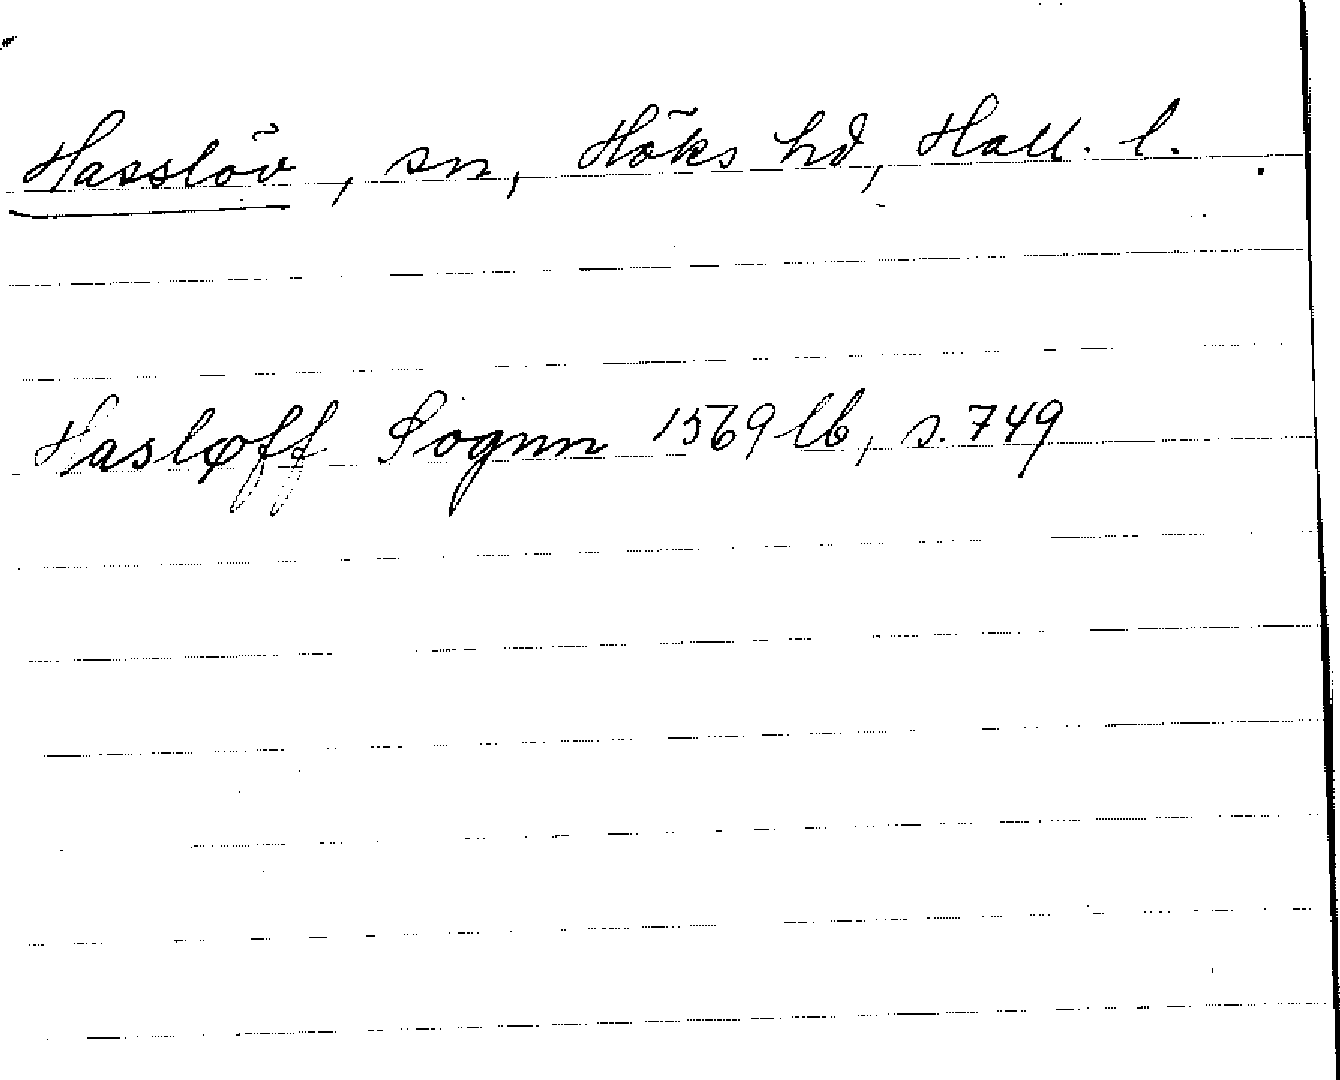 Hasslöv, sn, Höks hd, Hall. l.
Hasløff Sognn 1569 lb, s. 749